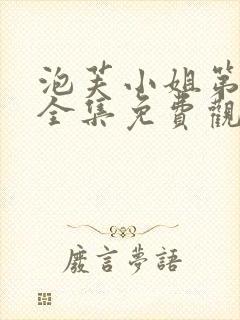 泡芙小姐第
全集免費觀
廢言夢語